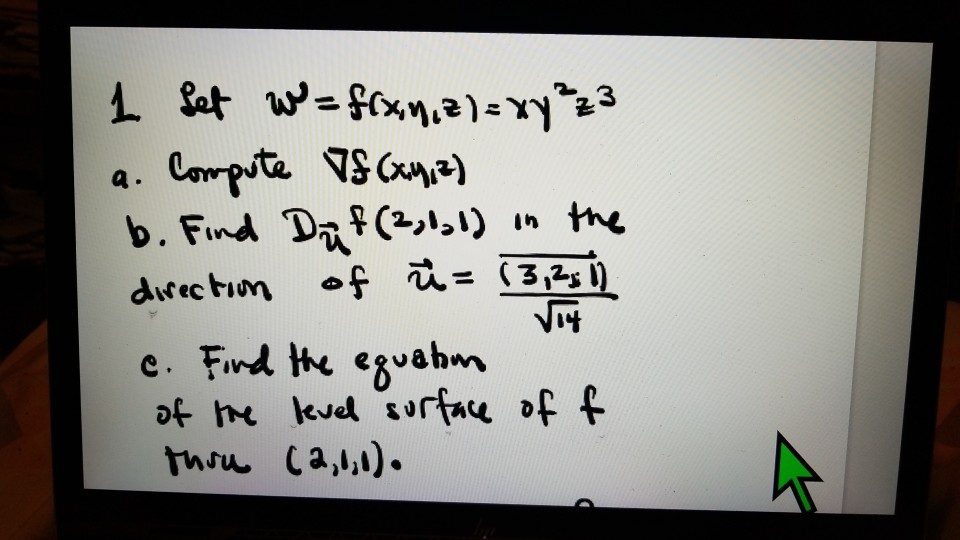 1 Set w = f(x,y,z) = xy²z³
a. Compute ∇f(x,y,z)
b. Find D_u⃗ f(2,1,1) in the
direction of u⃗ = (3,2,1)/√14
c. Find the equation
of the level surface of f
thru (2,1,1).